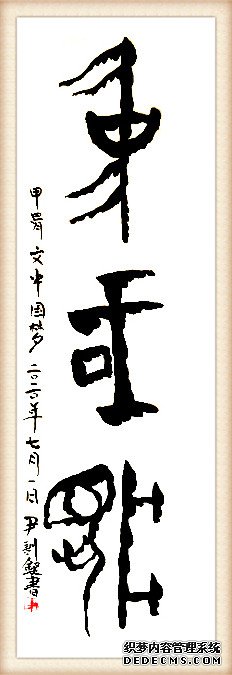 中国梦
甲骨文中国梦 二〇二〇年七月一日 尹书
织梦内容管理系统
DEDECMS.COM